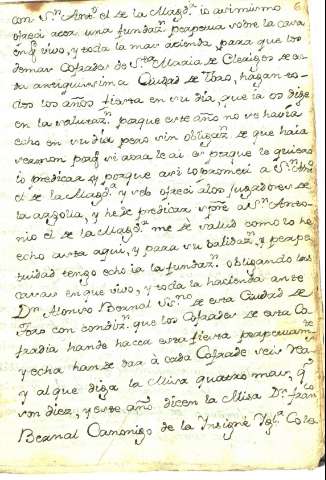 con Sn. Anto. el de la Magda. io asimismo
ofreci acer una fundazn. perpetua sobre la casa
en q vivo, y toda la mas acienda para que los
demas Cofrades de Sta Maria de Clerigos de es
ta antiquisima Ciudad de Toro, hagan to
dos los años fiesta en su dia, que ia os dije
en la salutazn. porque este año no se havia
echo en su dia pero sin obligazn. de que haia
sermon porq si asta le ai es porque lo quiero
io predicar y porque asi lo prometi a Sn. Anto
el de la Magda. y lo ofreci a los jugadores de
la argolla, y he de predicar sobre Sn. Anto
nio el de la Magda. me de salud como lo he
echo asta aqui, y para su balidazn. y perpe
tuidad tengo echo ia la fundazn. obligando las
casas en que vivo, y toda la hacienda ante
Dn. Alonso Bernal Sno. de esta Ciudad de
Toro con condizn. que los Cofrades de esta Co
fradia hande hacer esta fiesta perpetuamte
y echa hanse dar à cada Cofrade seis rea
y al que diga la Misa quatro mas, q
son diez, y este año dicen la Misa Dn. Fran
Bernal Canonigo de la Insigne Igla. Cole